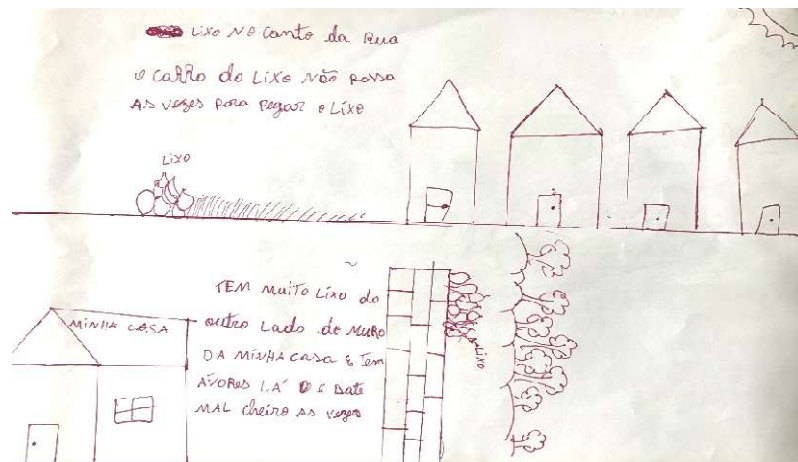 Lixo no canto da Rua
o carro do Lixo não passa
As vezes para pegar o Lixo
Lixo
TEM muito Lixo do
outro Lado do muro
DA MINHA casa e Tem
ÁVORES LÁ e bate
MAL cheiro as vezes
MINHA CASA
Lixo